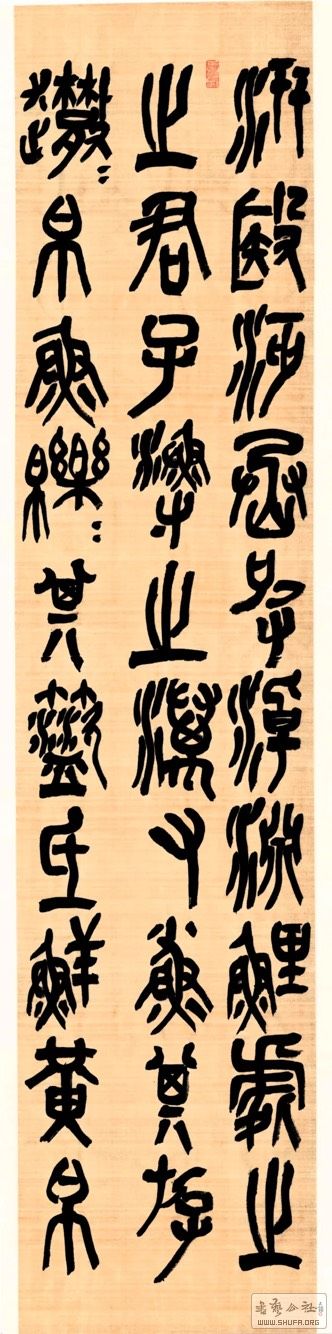 汧殹沔丞皮淖淵鯉處之
之君子漁之澫又小魚其斿
帛魚皪=其盜氐鮮黃帛
書藝公社
WWW.SHUFA.ORG